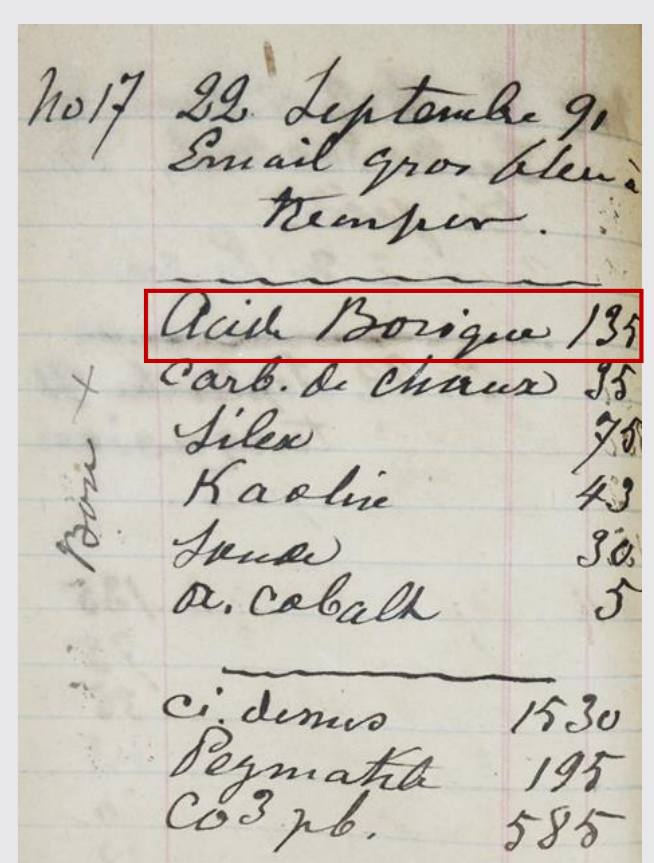 No 17 22 Septembre 91
Email gros bleu à
tremper.
Acide Borique 135
Carb. de chaux 35
Silex 75
Kaolin 43
Soude 30
ox. cobalt 5
Bon +
ci. dessus 1530
Pegmatite 195
CO3 pb. 585